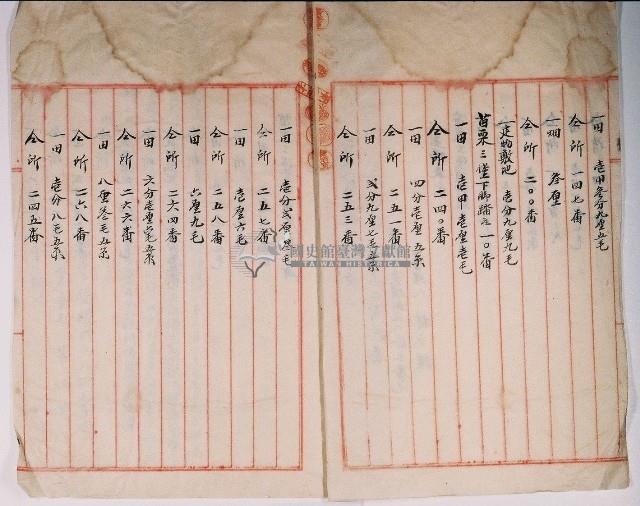 一田 壱甲参分九厘五毛
仝所 一四七番
一畑 参厘
仝所 二〇〇番
一建物敷地 壱分九厘九毛
苗栗三堡下脚踏庄一〇番
一田 壱甲壱厘壱毛
仝所 二四〇番
一田 四分壱厘五糸
仝所 二五一番
一田 弐分九厘七毛五糸
仝所 二五三番
一田 壱分弐厘 毛
仝所 二五七番
一田 壱厘六毛
仝所 二五八番
一田 六厘九毛
仝所 二六四番
一田 六分壱厘 毛五糸
仝所 二六六番
一田 八厘参毛五糸
仝所 二六八番
一田 壱分八毛五糸
仝所 二四五番
國史館臺灣文獻館
TAIWAN HISTORICA